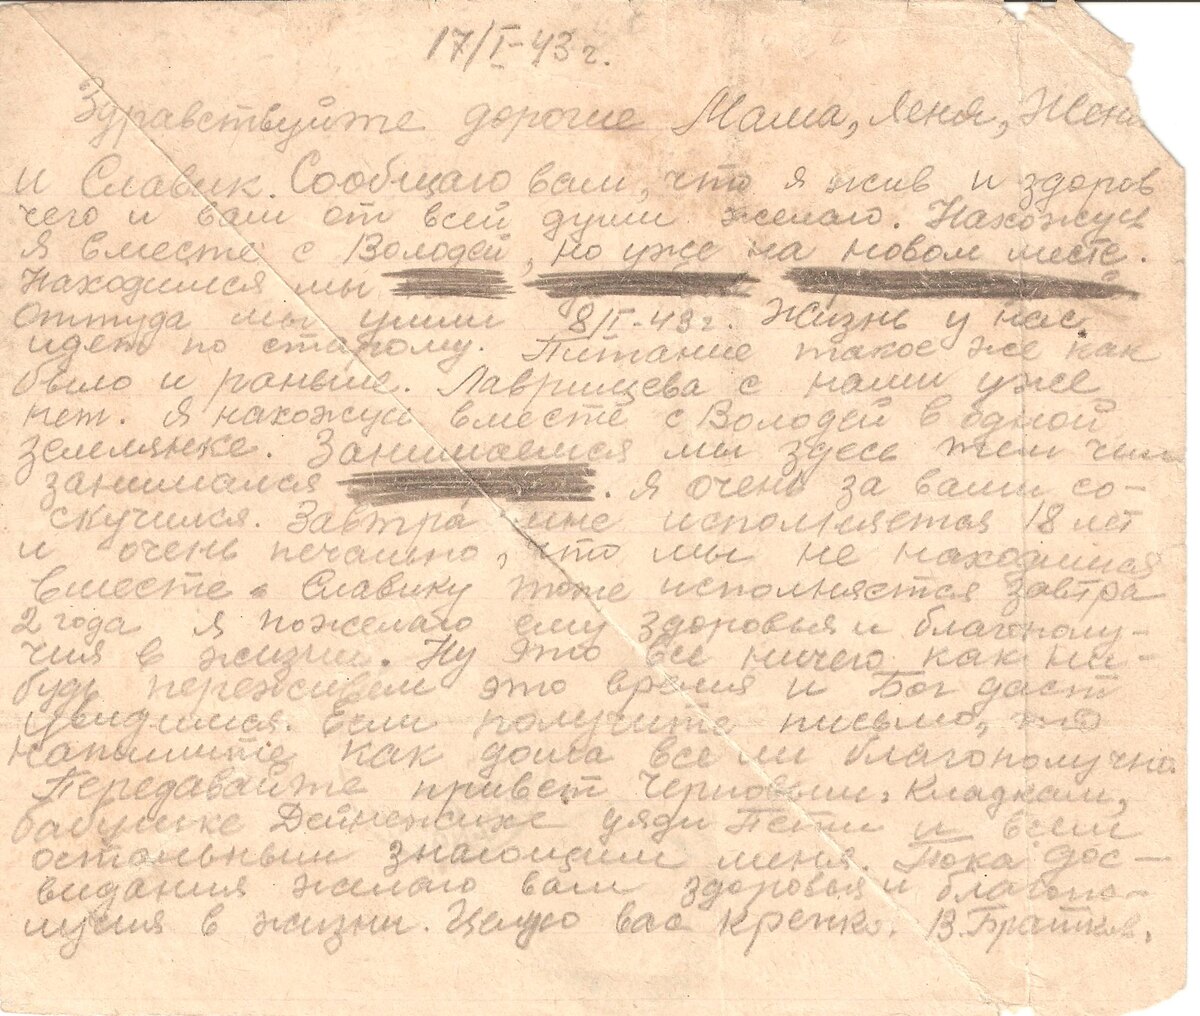 17/I-43 г.
Здравствуйте дорогие Мама, Леня, Женя
и Славик. Сообщаю вам, что я жив и здоров
чего и вам от всей души желаю. Нахожусь
я вместе с Володей, но уже на новом месте.
Находимся мы
Оттуда мы ушли 8/I-43 г. Жизнь у нас
идет по старому. Питание такое же как
было и раньше. Лаврищева с нами уже
нет. Я нахожусь вместе с Володей в одной
землянке. Занимаемся мы здесь тем чем
занимался . Я очень за вами со-
скучился. Завтра мне исполняется 18 лет
и очень печально, что мы не находимся
вместе. Славику тоже исполняется завтра
2 года я пожелаю ему здоровья и благополу-
чия в жизни. Ну это все ничего как ни-
будь переживем это время и Бог даст
увидимся. Если получите письмо, то
напишите как дома все ли благополучно
Передавайте привет Черновым, Кладкам,
бабушке Дейнежихе дяди Пети и всем
остальным знающим меня. Пока дос-
видания желаю вам здоровья и благопо-
лучия в жизни. Целую вас крепко. В. Братков.